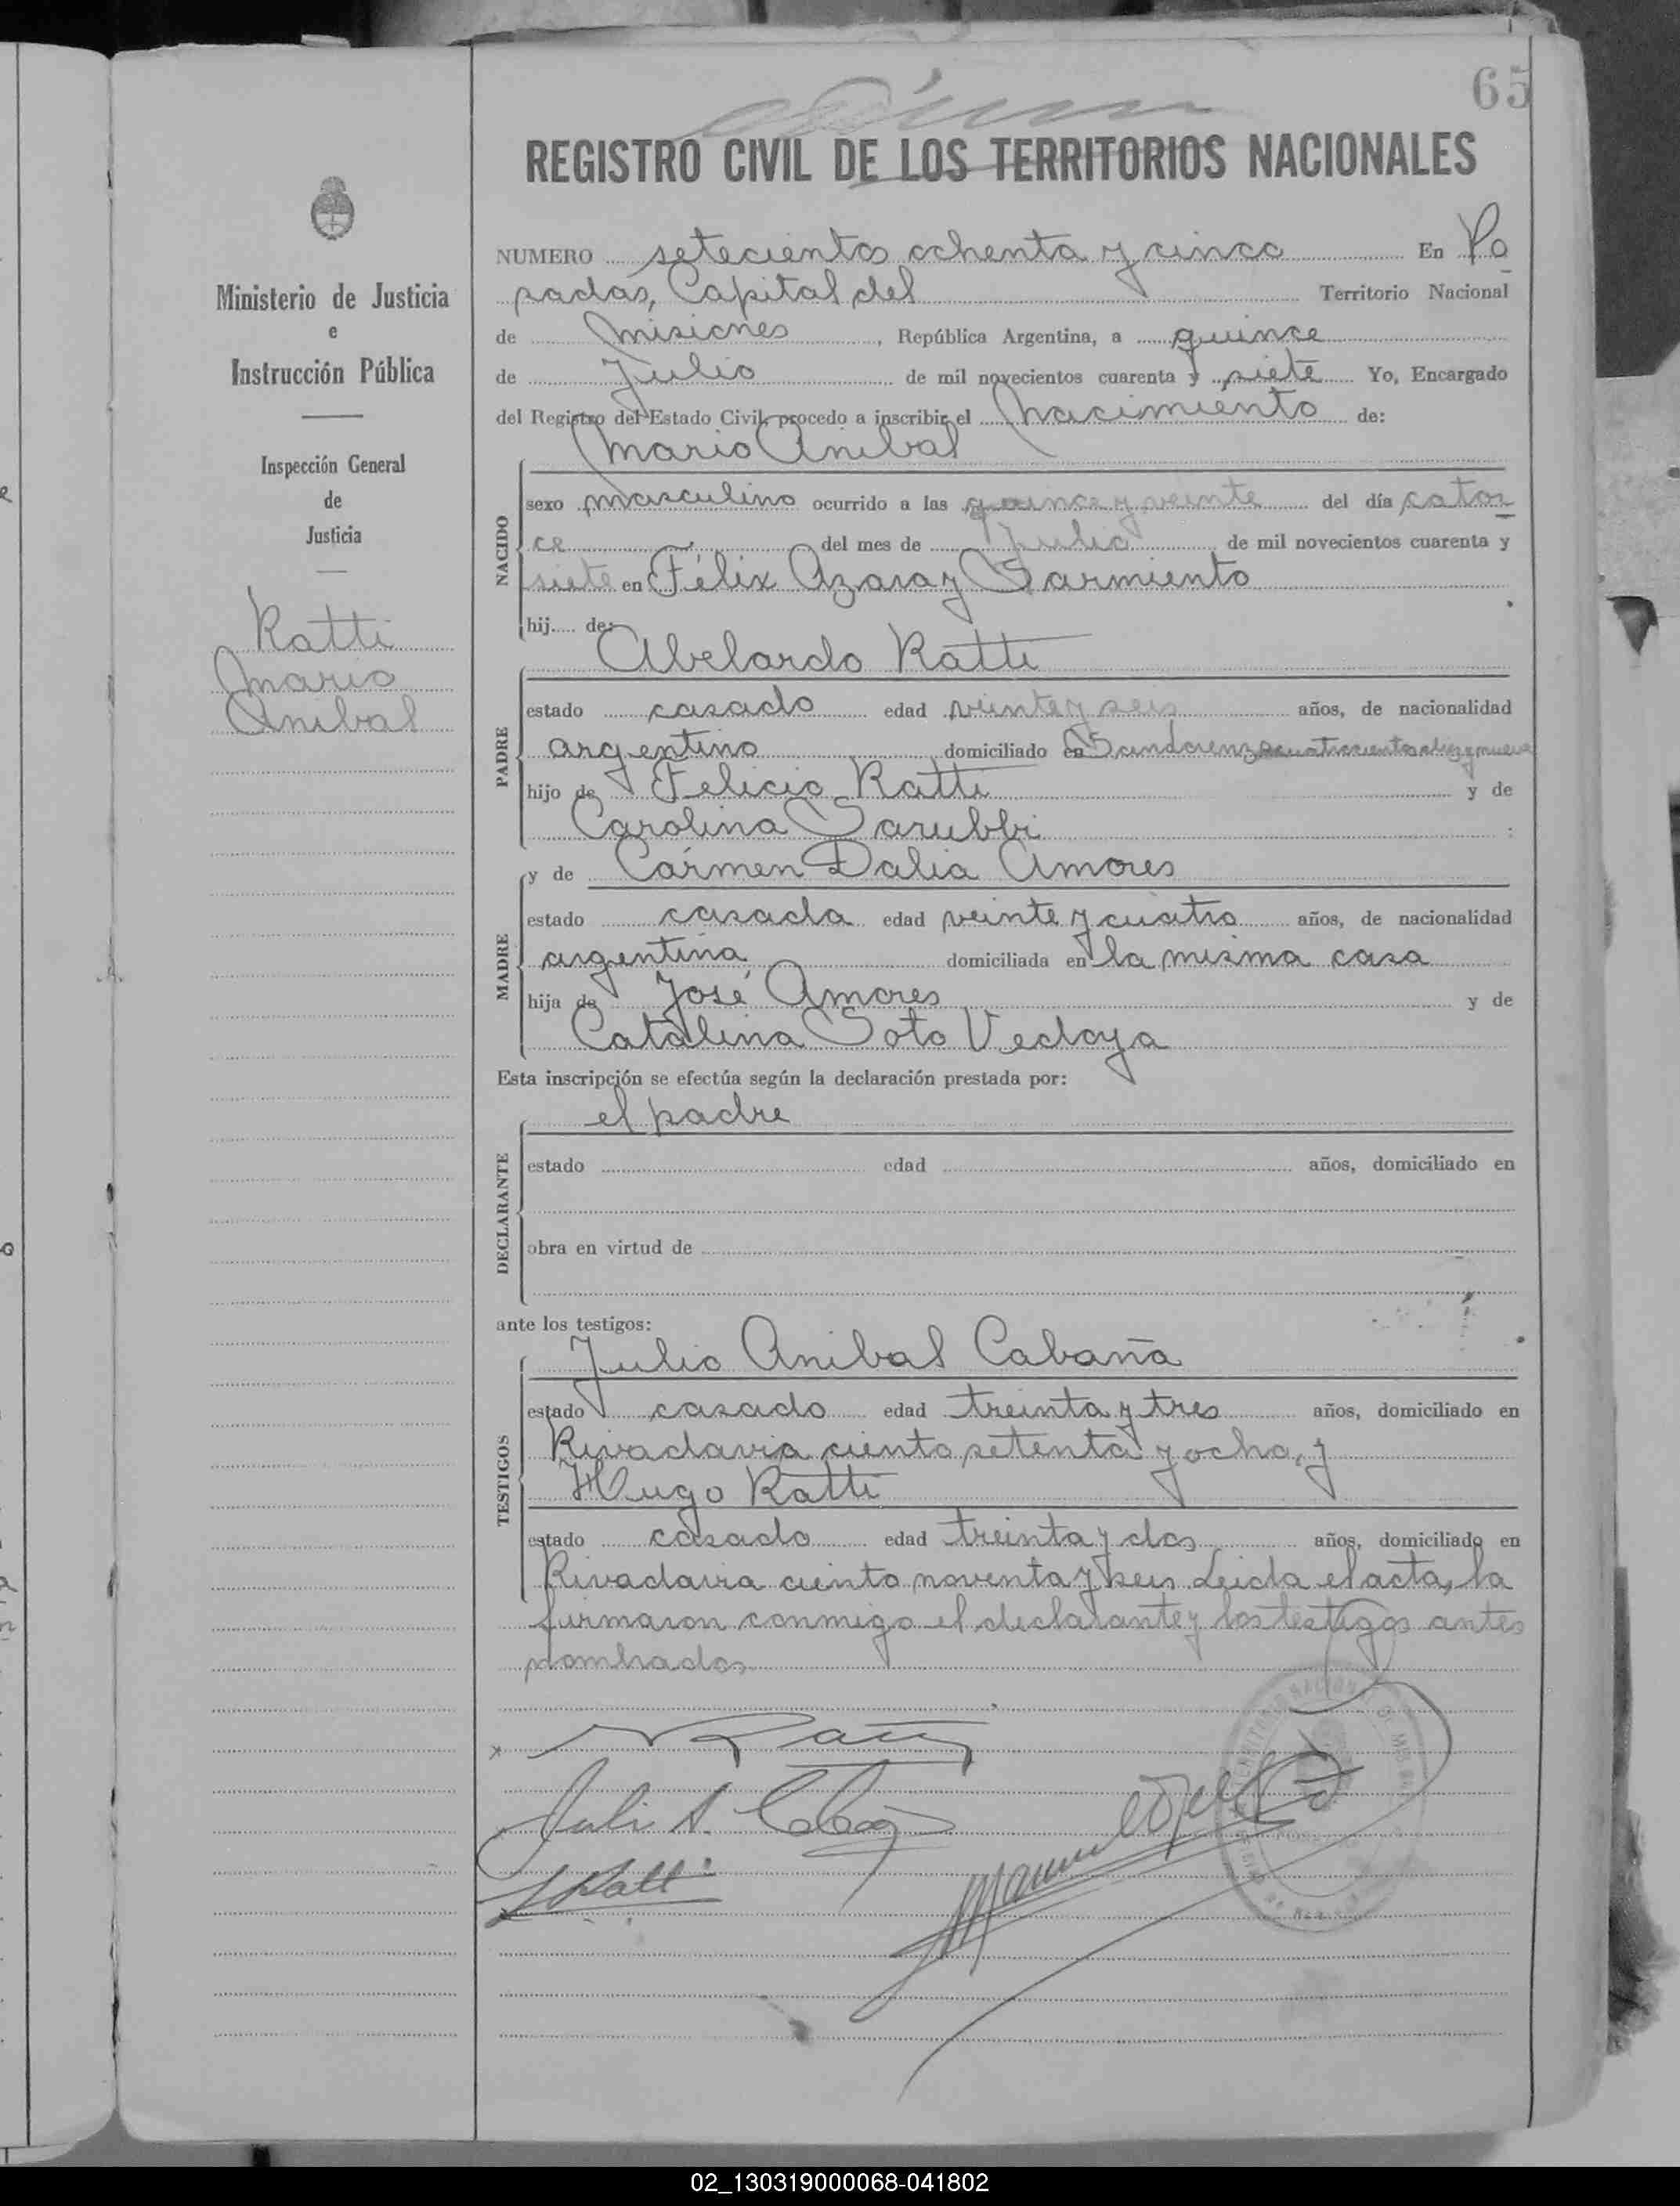 65
REGISTRO CIVIL DE LOS TERRITORIOS NACIONALES
Ministerio de Justicia
e
Instrucción Pública
Inspección General
de
Justicia
Ratti
Mario
Anibal
NUMERO setecientos ochenta y cinco En Po
sadas, Capital del Territorio Nacional
de Misiones, República Argentina, a quince
de Julio de mil novecientos cuarenta y siete Yo, Encargado
del Registro del Estado Civil, procedo a inscribir el Nacimiento de:
Mario Anibal
NACIDO
sexo masculino ocurrido a las quince y veinte del día cator
ce del mes de Julio de mil novecientos cuarenta y
siete en Félix Azara y Sarmiento
hij de:
Abelardo Ratti
PADRE
estado casado edad veinte y seis años, de nacionalidad
argentino domiciliado en San Lorenzo cuatrocientos diez y nueve
hijo de Felicio Ratti y de
Carolina Sarubbi
y de Cármen Dalia Amores
MADRE
estado casada edad veinte y cuatro años, de nacionalidad
argentina domiciliada en la misma casa
hija de José Amores y de
Catalina Soto Vedoya
Esta inscripción se efectúa según la declaración prestada por:
el padre
DECLARANTE
estado edad años, domiciliado en
obra en virtud de
ante los testigos:
Julio Anibal Cabaña
TESTIGOS
estado casado edad treinta y tres años, domiciliado en
Rivadavia ciento setenta y ocho, y
Hugo Ratti
estado casado edad treinta y dos años, domiciliado en
Rivadavia ciento noventa y seis Leida el acta, la
firmaron conmigo el declarante y los testigos antes
nombrados
Ratti
Julio A. Cabaña
H Ratti
Manuel
02_130319000068-041802